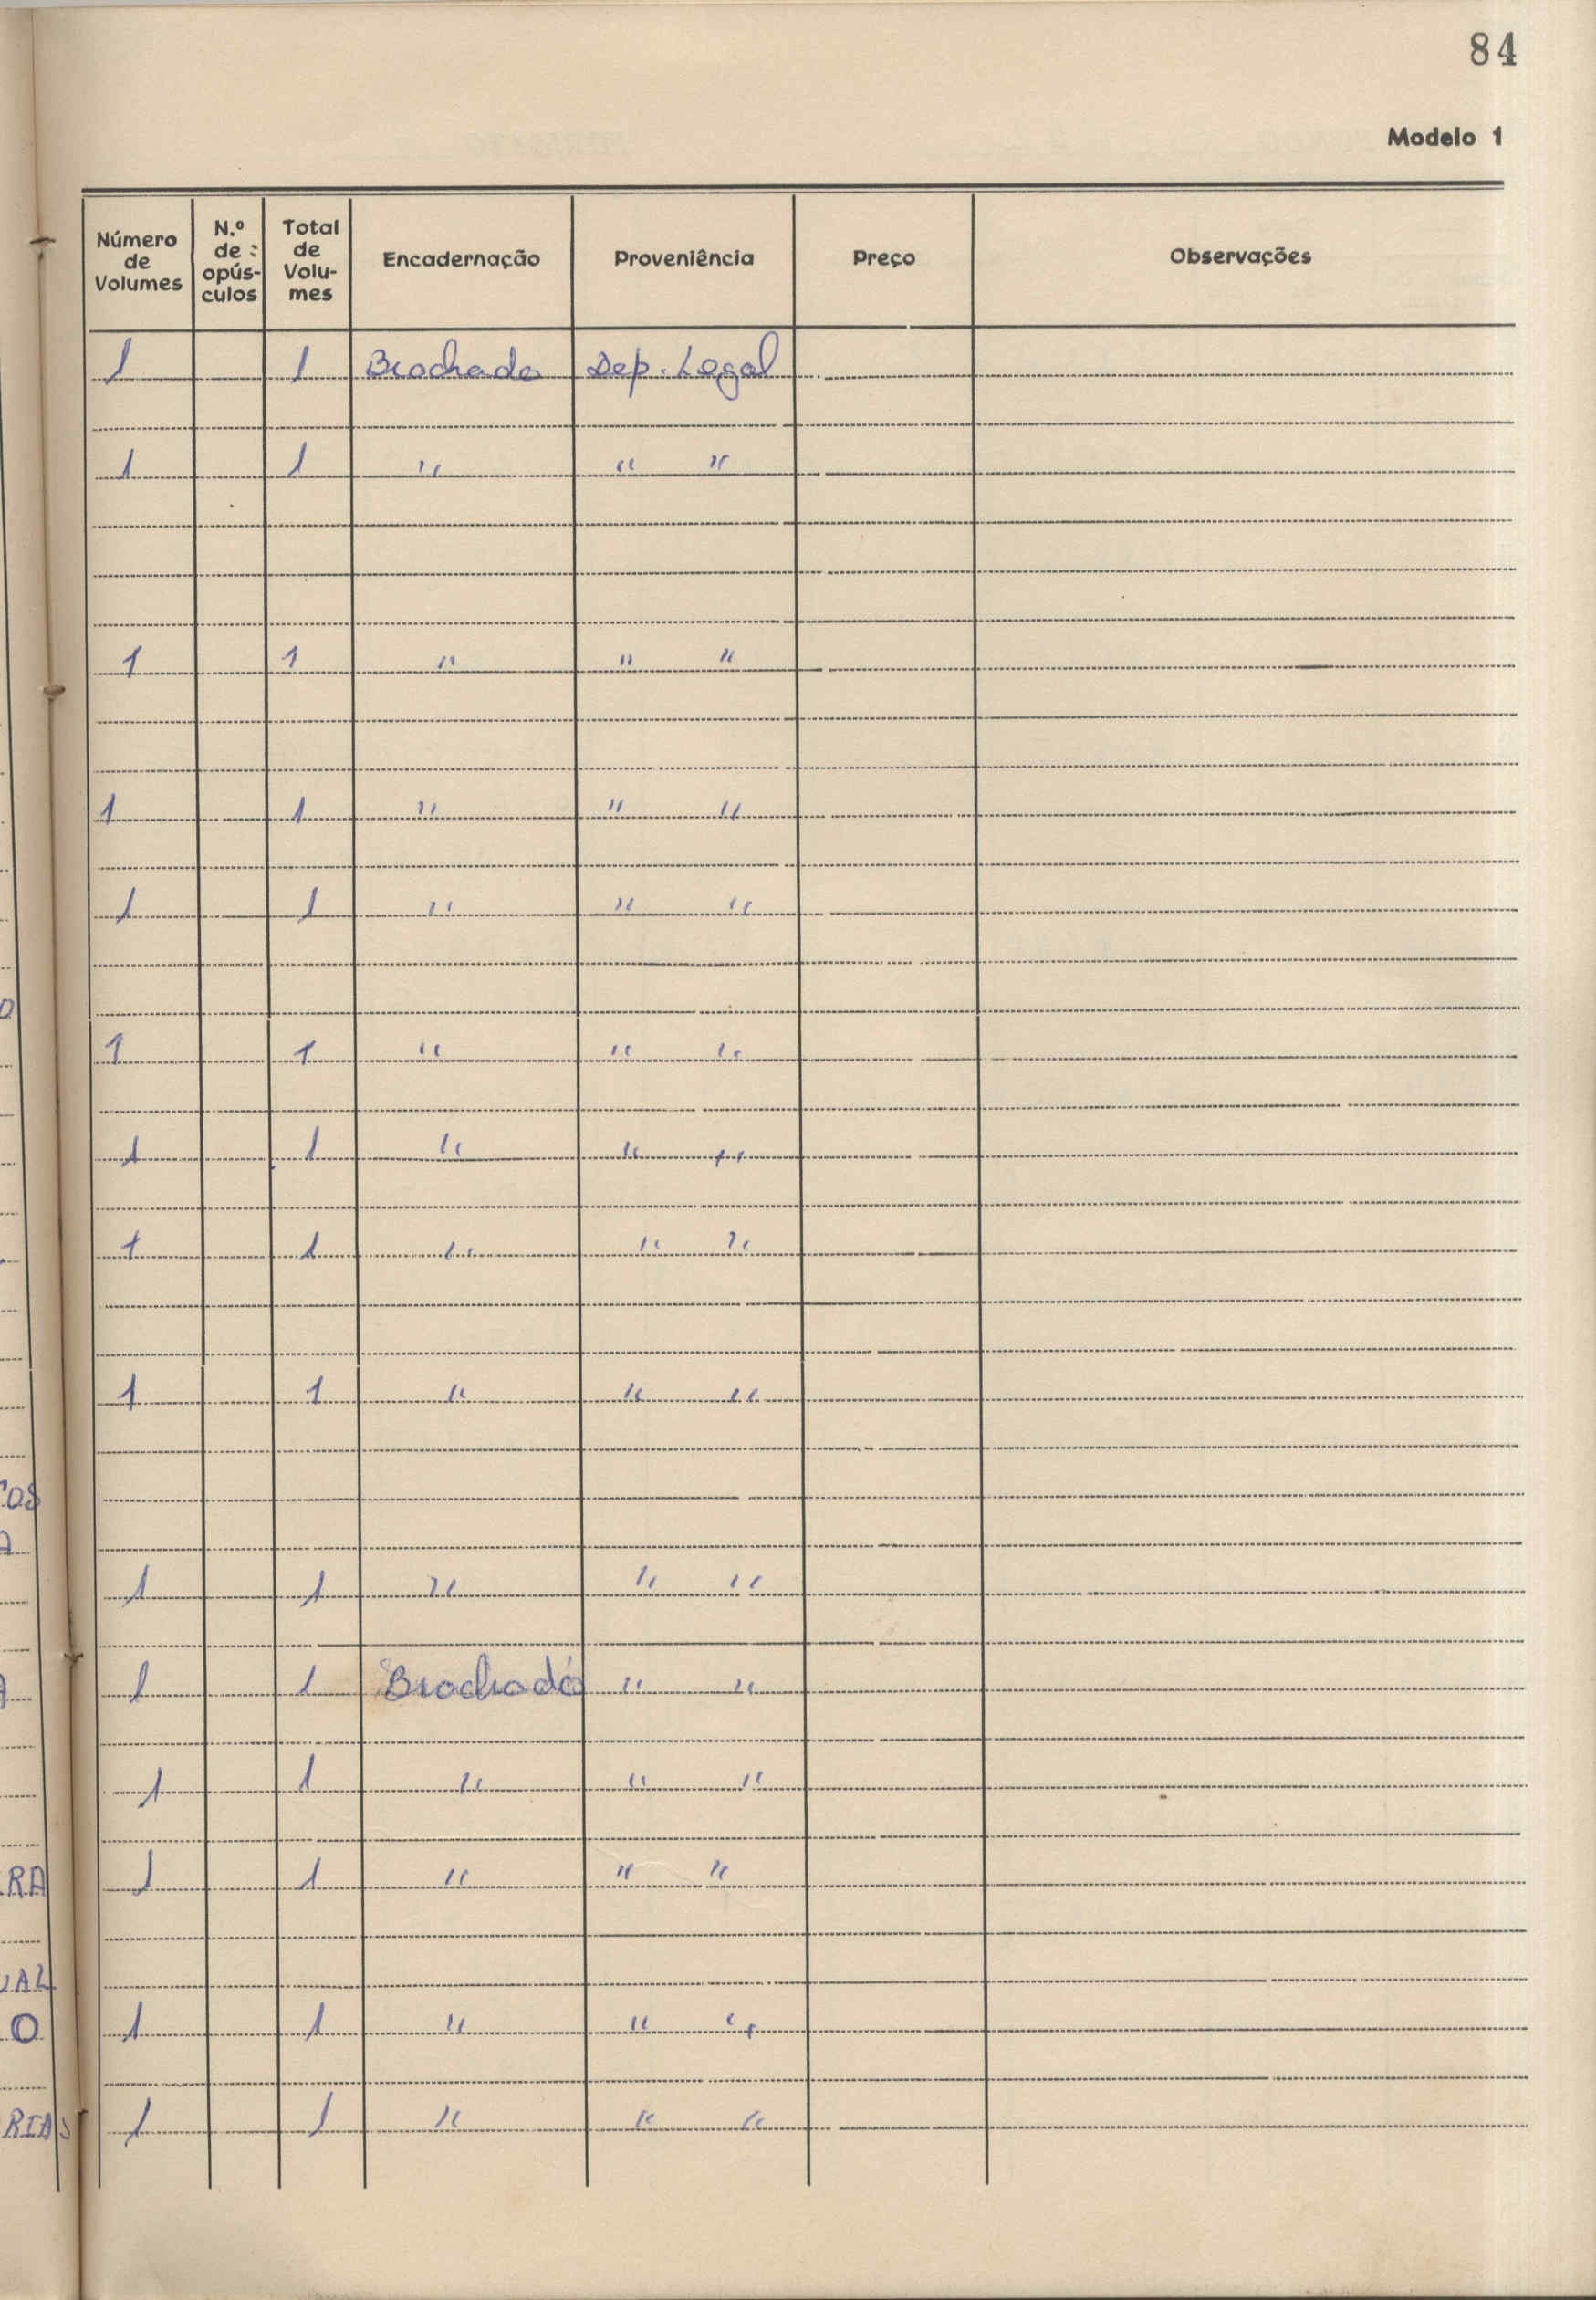 84
Modelo 1
Número de Volumes | N.º de opús-culos | Total de Volu-mes | Encadernação | Proveniência | Preço | Observações
1 1 Brochado Dep. Legal
1 1 " " "
1 1 " " "
1 1 " " "
1 1 " " "
O
1 1 " " "
1 1 " " "
1 1 " " "
1 1 " " "
COS
A
1 1 " " "
1 1 Brochado " "
1 1 " " "
RA 1 1 " " "
UAL
O 1 1 " " "
RIAS 1 1 " " "